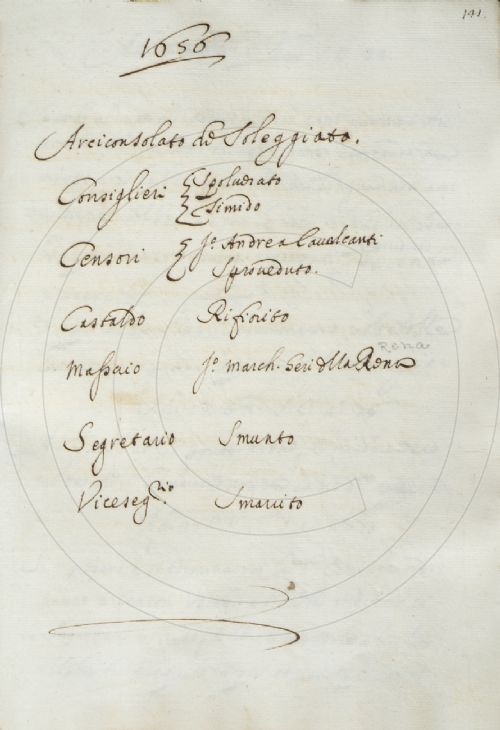 141.
1656
Arciconsolato de Soleggiato.
Consiglieri { Spolverato
{ Timido
Censori { Jo. Andrea Cavalcanti
Sproveduto.
Castaldo Rifiorito
Rena
Massaio Jo. March. Seri della Rena
Segretario Smunto
Vicesegrio. Smarrito